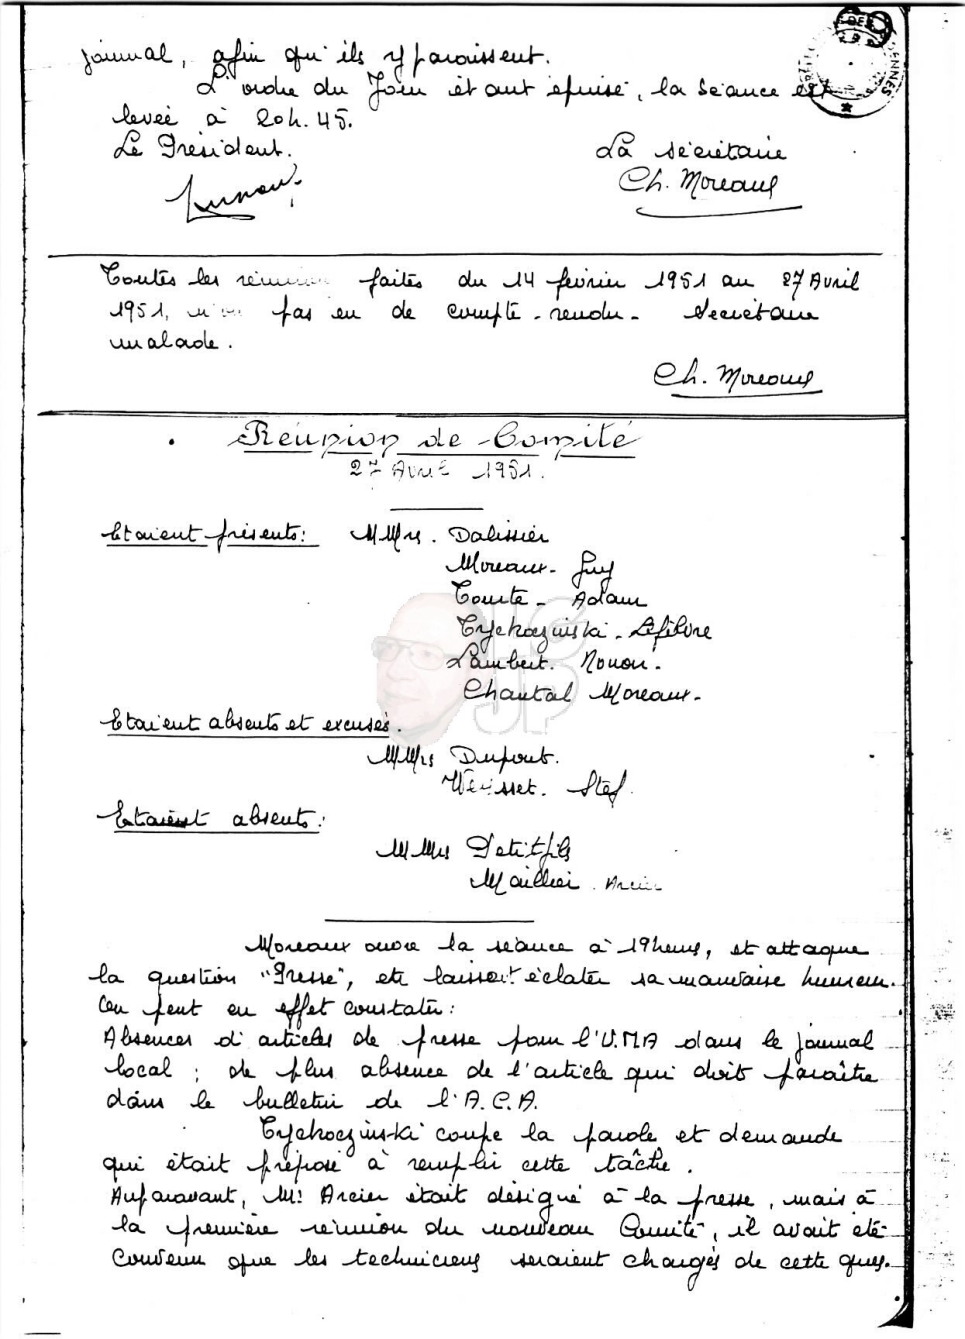 journal, afin qu'ils y paraissent.
L'ordre du Jour étant épuisé, la séance est
levée à 20h.45.
Le Président.
La secrétaire
Ch. Moreaux
Toutes les réunion faites du 14 février 1951 au 27 Avril
1951, n'on pas eu de compte-rendu - Secrétaire
malade.
Ch. Moreaux
Réunion de Comité
27 Avril 1951.
Etaient présents: MMrs. Dalissier
Moreaux - Guy
Comte - Adam
Tychoczinski - Lefebvre
Lambert. Nouon -
Chantal Moreaux -
Etaient absents et excusés.
MMrs Dupont.
Wérisset. Stef.
Etaient absents:
MMrs Petitfils
Maillier. Arcier
Moreaux ouvre la séance à 19 heures, et attaque
la question "Presse", etc laissant éclater sa mauvaise humeur.
On peut en effet constater:
Absences d'articles de presse pour l'U.M.A dans le journal
local; de plus absence de l'article qui doit paraître
dans le bulletin de l'A.C.A.
Tychoczinski coupe la parole et demande
qui était préposé à remplir cette tâche.
Auparavant, Mr Arcier était désigné à la presse, mais à
la première réunion du nouveau Comité, il avait été
convenu que les techniciens seraient chargés de cette ques.